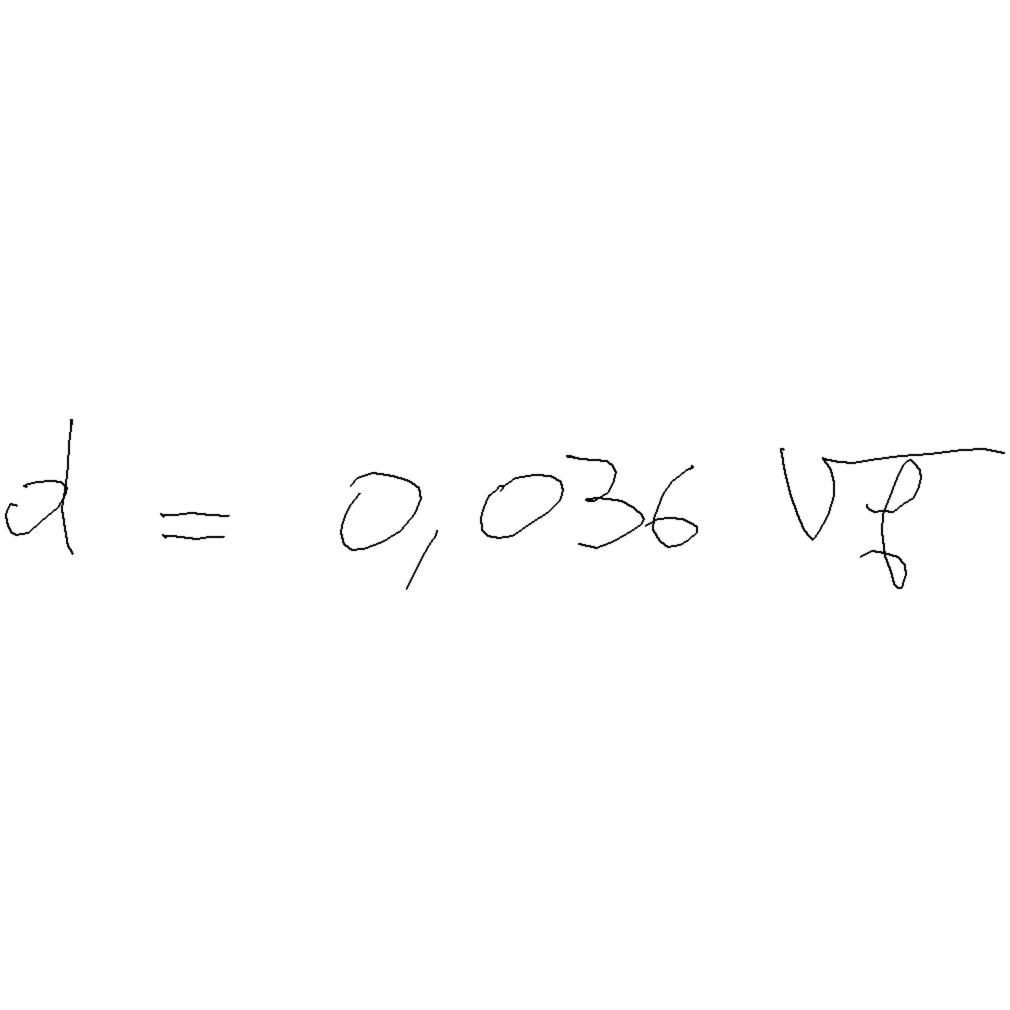 d = 0,036 √f